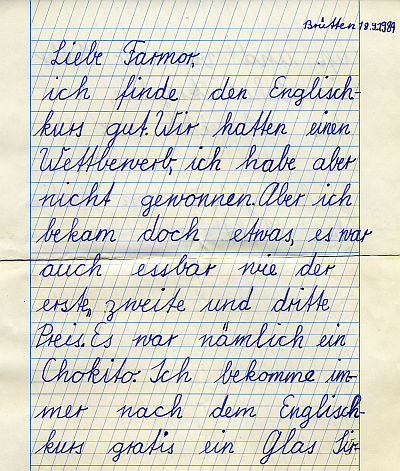 Brütten 18.9.1989
Liebe Farmor,
ich finde den Englisch-
kurs gut. Wir hatten einen
Wettbewerb, ich habe aber
nicht gewonnen. Aber ich
bekam doch etwas, es war
auch essbar wie der
erste, zweite und dritte
Preis. Es war nämlich ein
Chokito. Ich bekomme im-
mer nach dem Englisch-
kurs gratis ein Glas Sir-